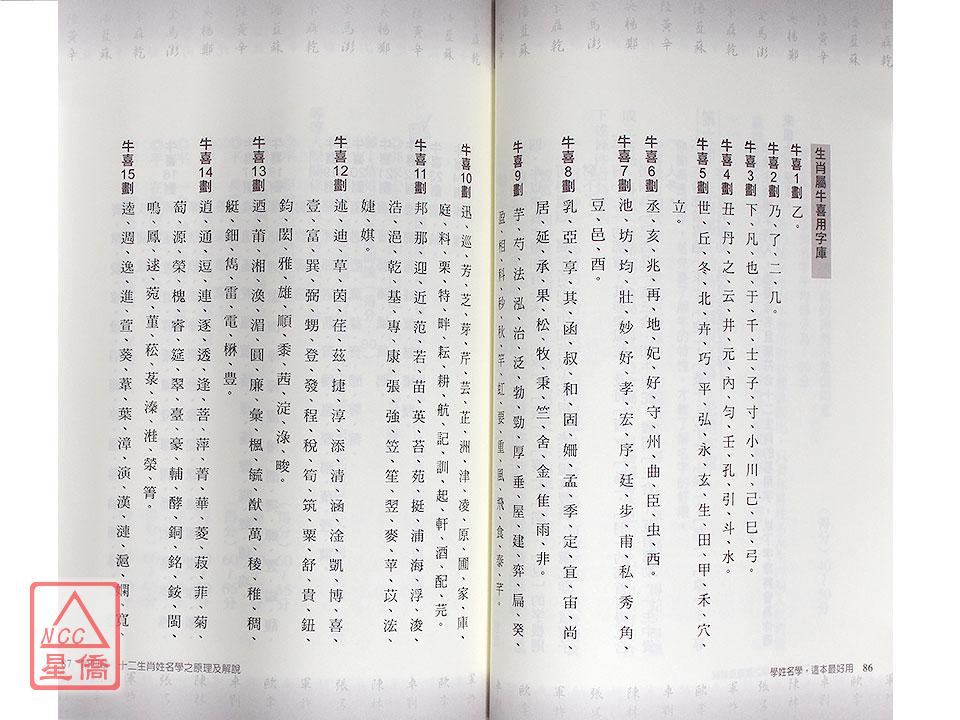 生肖屬牛喜用字庫
牛喜1劃 乙。
牛喜2劃 乃、了、二、几。
牛喜3劃 下、凡、也、于、千、士、子、寸、小、川、己、巳、弓。
牛喜4劃 丑、丹、之、云、井、元、內、勻、壬、孔、引、斗、水。
牛喜5劃 世、丘、冬、北、卉、巧、平、弘、永、玄、生、田、甲、禾、穴、
立。
牛喜6劃 丞、亥、兆、再、地、妃、好、守、州、曲、臣、虫、西。
牛喜7劃 池、坊、均、壯、妙、妤、孝、宏、序、廷、步、甫、私、秀、角、
豆、邑、酉。
牛喜8劃 乳、亞、享、其、函、叔、和、固、姍、孟、季、定、宜、宙、尚、
居、延、承、果、松、牧、秉、竺、舍、金、隹、雨、非。
牛喜9劃 芋、芍、法、泓、治、泛、勃、勁、厚、垂、屋、建、弈、扁、癸、
盈、相、科、秒、秋、竿、虹、要、重、風、飛、食、泰、芊。
牛喜10劃 迅、巡、芳、芝、芽、芹、芸、芷、洲、津、凌、原、圃、家、庫、
庭、料、栗、特、畔、耘、耕、航、記、訓、起、軒、酒、配、芫。
牛喜11劃 邦、那、迎、近、范、若、苗、英、苔、苑、挺、浦、海、浮、浚、
浩、浥、乾、基、專、康、張、強、笠、笙、翌、麥、苹、苡、浤、
婕、娸。
牛喜12劃 述、迪、草、茵、荏、茲、捷、淳、添、清、涵、淦、凱、博、喜、
壹、富、巽、弼、甥、登、發、程、稅、筍、筑、粟、舒、貴、鈕、
鈞、閎、雅、雄、順、黍、茜、淀、淥、畯。
牛喜13劃 迺、莆、湘、渙、湄、圓、廉、彙、楓、毓、猷、萬、稜、稚、稠、
艇、鈿、雋、雷、電、楙、豊。
牛喜14劃 逍、通、逗、連、逐、透、逢、菩、萍、菁、華、菱、菽、菲、菊、
萄、源、榮、槐、睿、筵、翠、臺、豪、輔、酵、銅、銘、銨、閩、
鳴、鳳、逑、菀、菫、菘、菉、溱、溎、滎、箐。
牛喜15劃 逵、週、逸、進、萱、葵、葦、葉、漳、演、漢、漣、滬、嫻、寬、
學姓名學，這本最好用 86
十二生肖姓名學之原理及解說
NCC
星僑